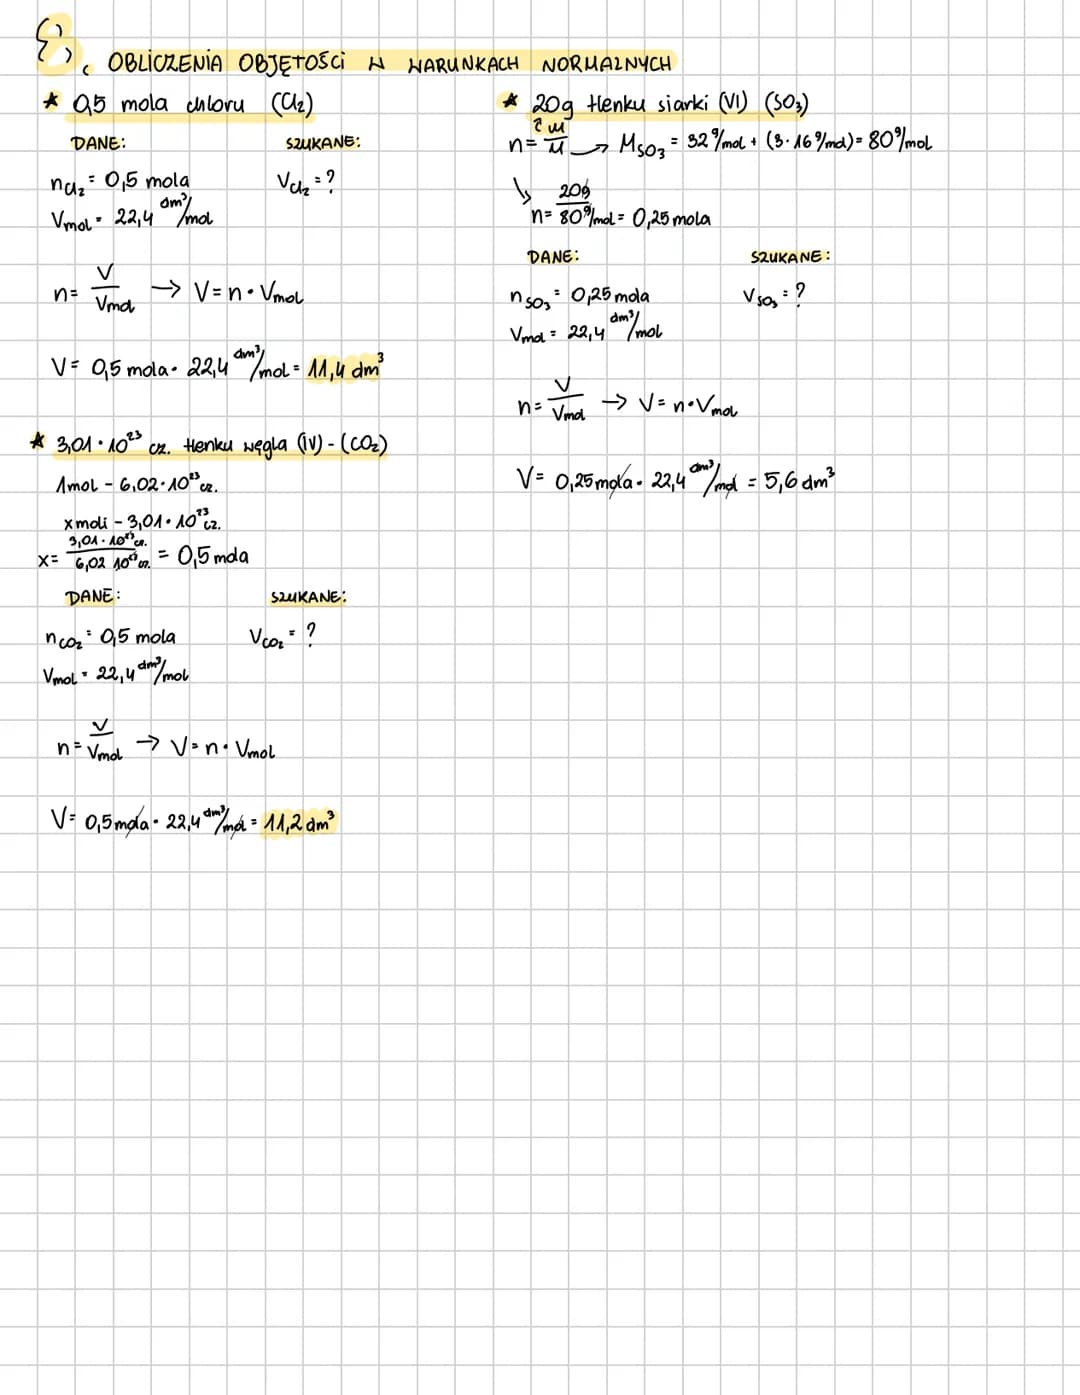 8. OBLICZENIA OBJĘTOŚCI W WARUNKACH NORMALNYCH
* 0,5 mola chloru (Cl₂)
DANE: SZUKANE:
n_Cl₂ = 0,5 mola V_Cl₂ = ?
Vmol = 22,4 dm³/mol
n = V/Vmol → V = n · Vmol
V = 0,5 mola · 22,4 dm³/mol = 11,4 dm³
* 3,01 · 10²³ cz. tlenku węgla (IV) - (CO₂)
1mol - 6,02 · 10²³ cz.
x moli - 3,01 · 10²³ cz.
x = 3,01 · 10²³ cz. / 6,02 10²³ cz. = 0,5 mola
DANE: SZUKANE:
n_CO₂ = 0,5 mola V_CO₂ = ?
Vmol = 22,4 dm³/mol
n = V/Vmol → V = n · Vmol
V = 0,5 mola · 22,4 dm³/mol = 11,2 dm³
* 20g tlenku siarki (VI) (SO₃)
n = m/M → M_SO₃ = 32 g/mol + (3 · 16 g/mol) = 80 g/mol
↳ n = 20g / 80 g/mol = 0,25 mola
DANE: SZUKANE:
n_SO₃ = 0,25 mola V_SO₃ = ?
Vmol = 22,4 dm³/mol
n = V/Vmol → V = n · Vmol
V = 0,25 mola · 22,4 dm³/mol = 5,6 dm³